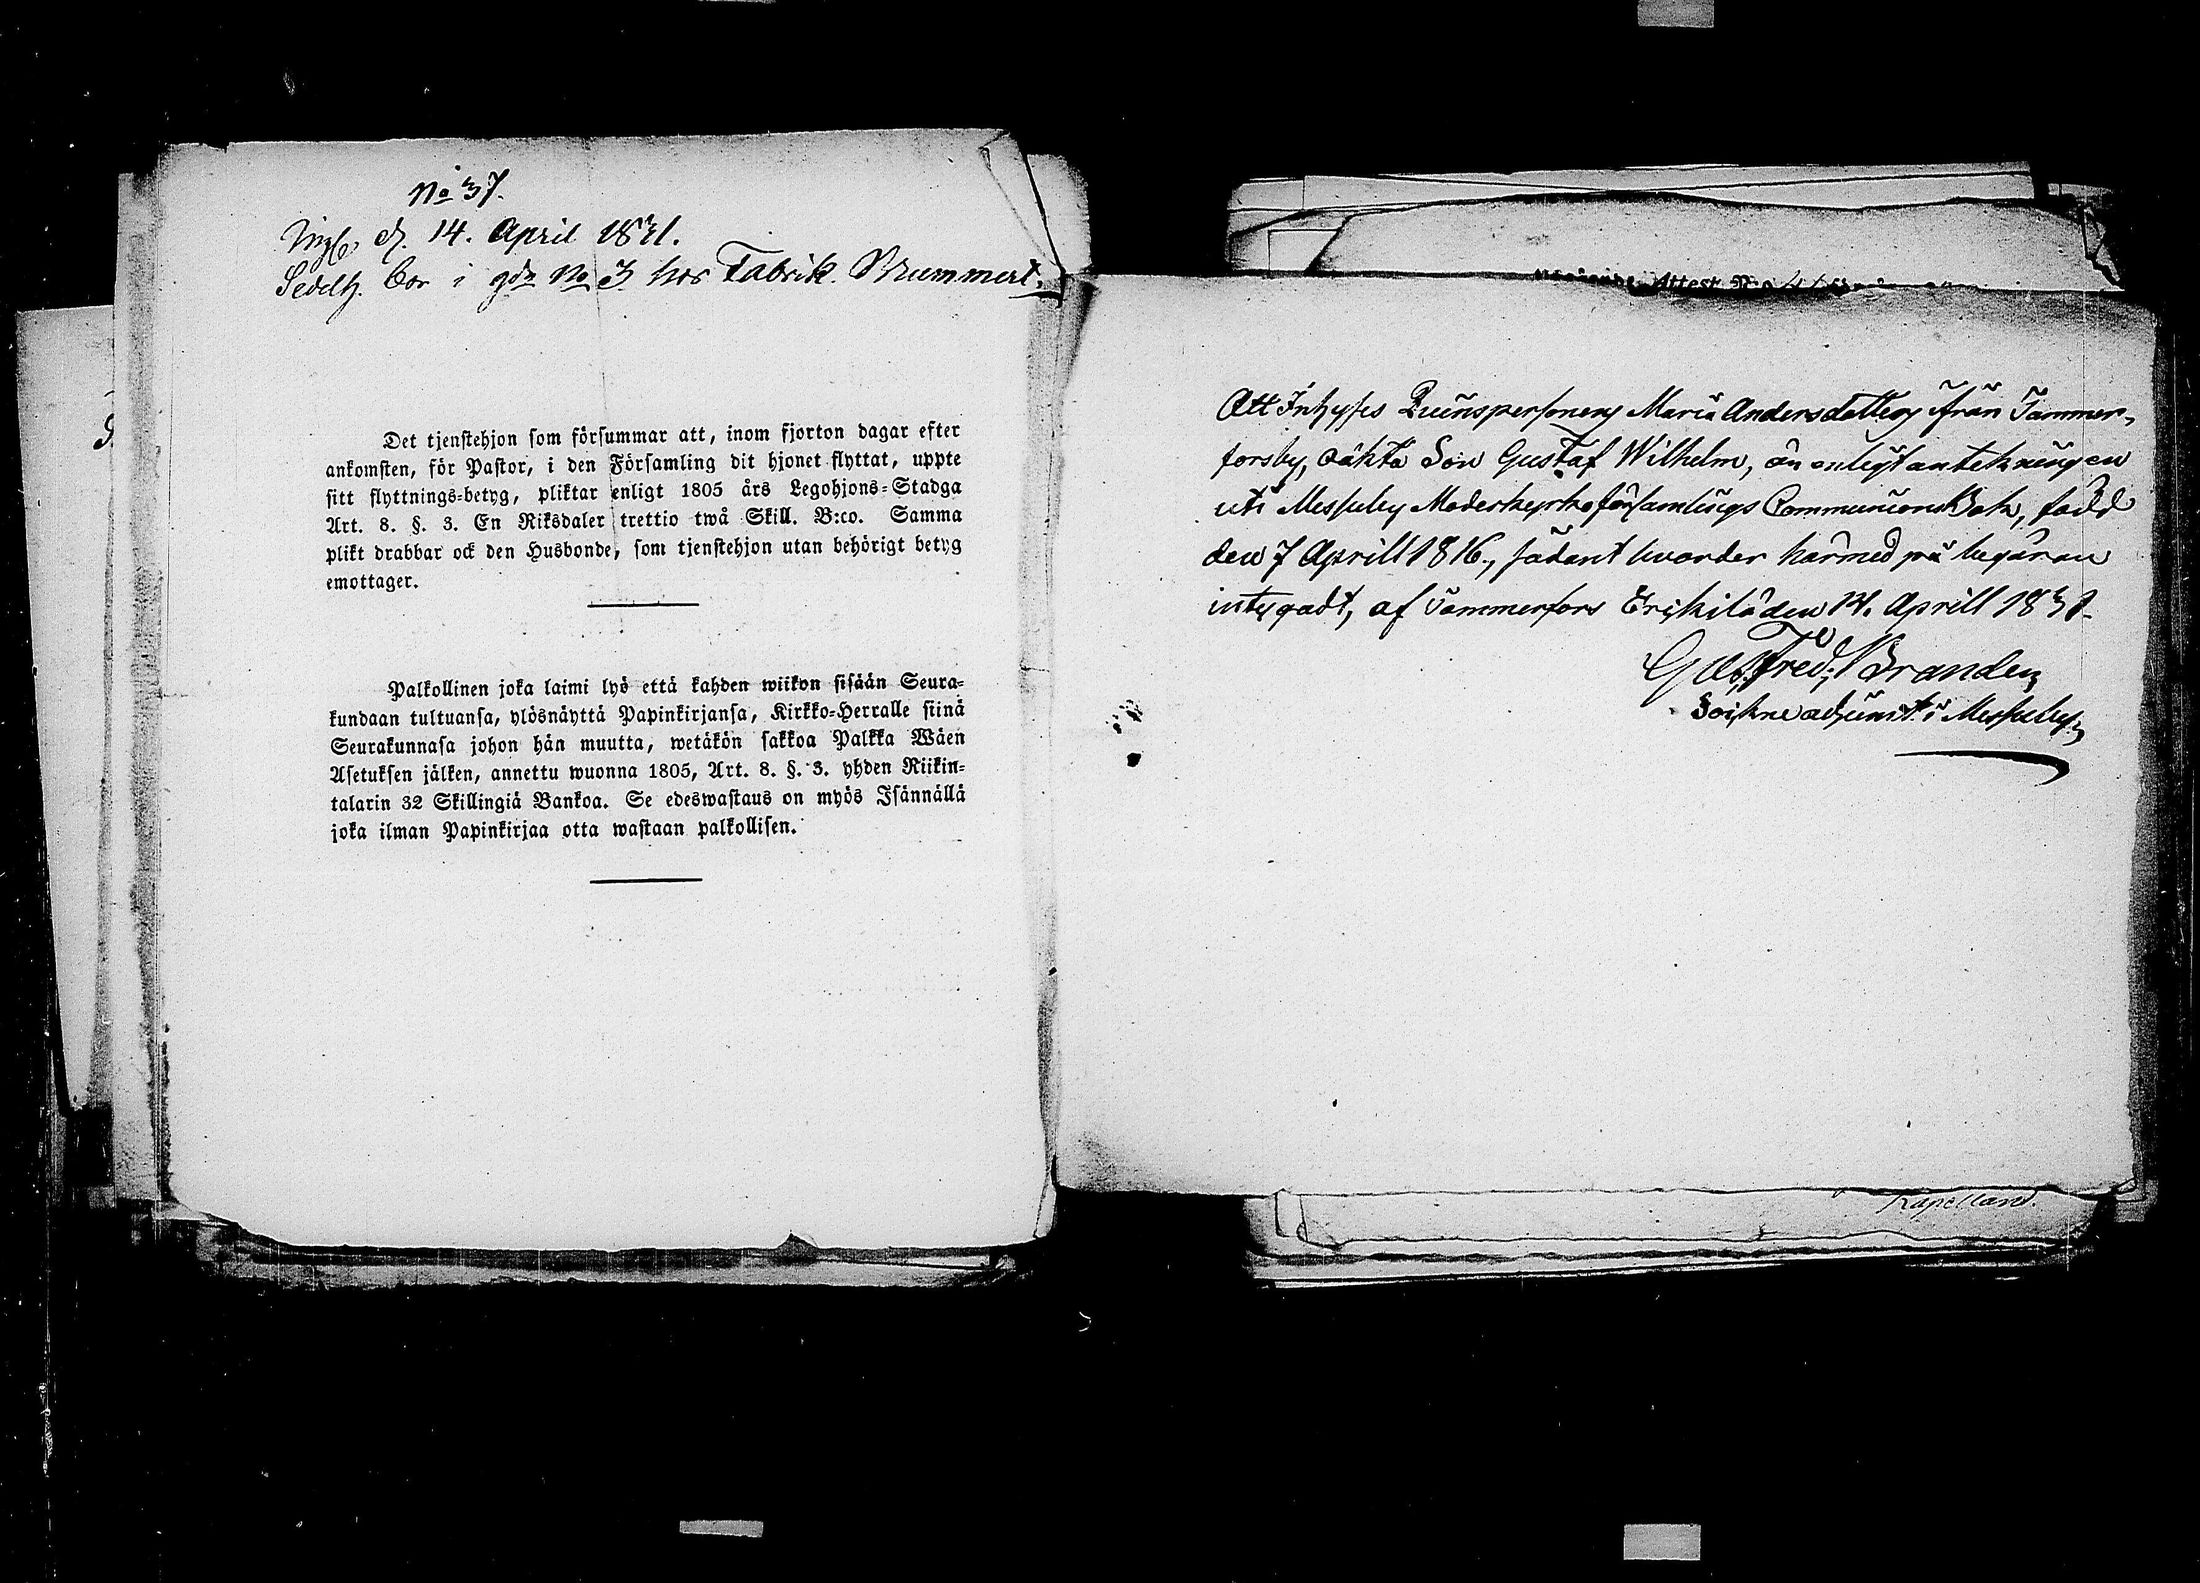 No 37.
d. 14. April 1831.
Sedelh. bor i gdn No 3 hos Fabrik. Brummert.
Det tjenstehjon som försummar att, inom fjorton dagar efter
ankomsten, för Pastor, i den Församling dit hjonet flyttat, uppte
sitt flyttnings-betyg, pliktar enligt 1805 års Legohjons-Stadga
Art. 8. §. 3. En Riksdaler trettio twå Skill. B:co. Samma
plikt drabbar ock den Husbonde, som tjenstehjon utan behörigt betyg
emottager.
Palkollinen joka laimi lyö että kahden wiikon sisään Seura-
kundaan tultuansa, ylösnäyttä Papinkirjansa, Kirkko-Herralle siinä
Seurakunnasa johon hän muutta, wetäkön sakkoa Palkka Wäen
Asetuksen jälken, annettu wuonna 1805, Art. 8. §. 3. yhden Riikin-
talarin 32 Skillingiä Bankoa. Se edeswastaus on myös Isännällä
joka ilman Papinkirjaa otta wastaan palkollisen.
Attest N:o
Att Inhyses Quinspersonens Maria Andersdotters ifrån Tammer-
forsby, oäkta Son Gustaf Wilhelm, än enligt antekningen
uti Messuby Moderkyrkoförsamlings Communions Bok, född
den 7 Aprill 1816., sådant warder härmed på begäran
intygadt, af Tammerfors Erikilä den 14. Aprill 1831.
Gust. Fred: Branden
Sockneadjunct i Messuby.
Kapellans.